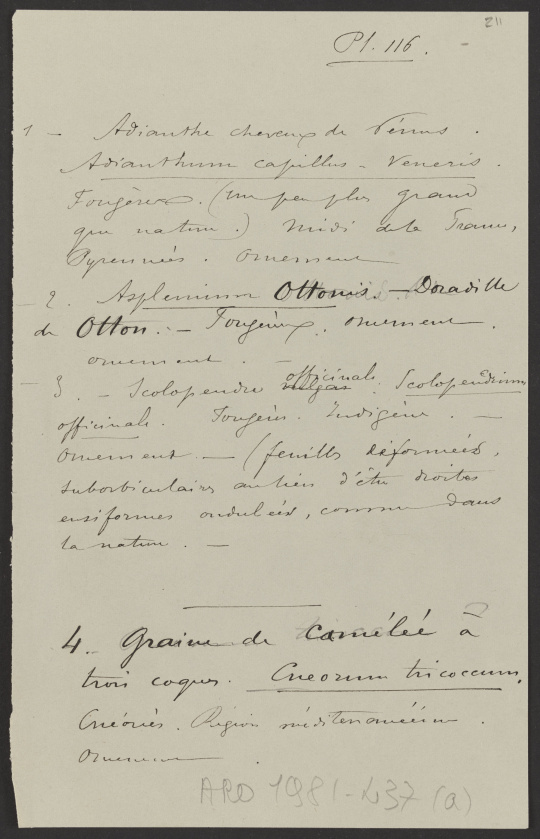 211
Pl. 116.
1 - Adianthe cheveux de Vénus.
Adianthum capillus-Veneris.
Fougères. (un peu plus grand
que nature.) Midi de la France,
Pyrennées. Ornement
- 2 Asplenium Ottonis. - Doradille
de Otton. - Fougères. ornement.
ornement. -
- 3. - Scolopendre vulgas officinale. Scolopendrium
officinale. Fougères. Indigène. -
Ornement. - (feuilles déformées,
suborbiculaires au lieu d'être droites
ensiformes ondulées, comme dans
la nature. -
4. Graine de Camélée à
trois coques. Cneorum tricoccum,
Cnéoriés. Région méditerranéenne.
Ornement.
ARO 1981-437 (a)